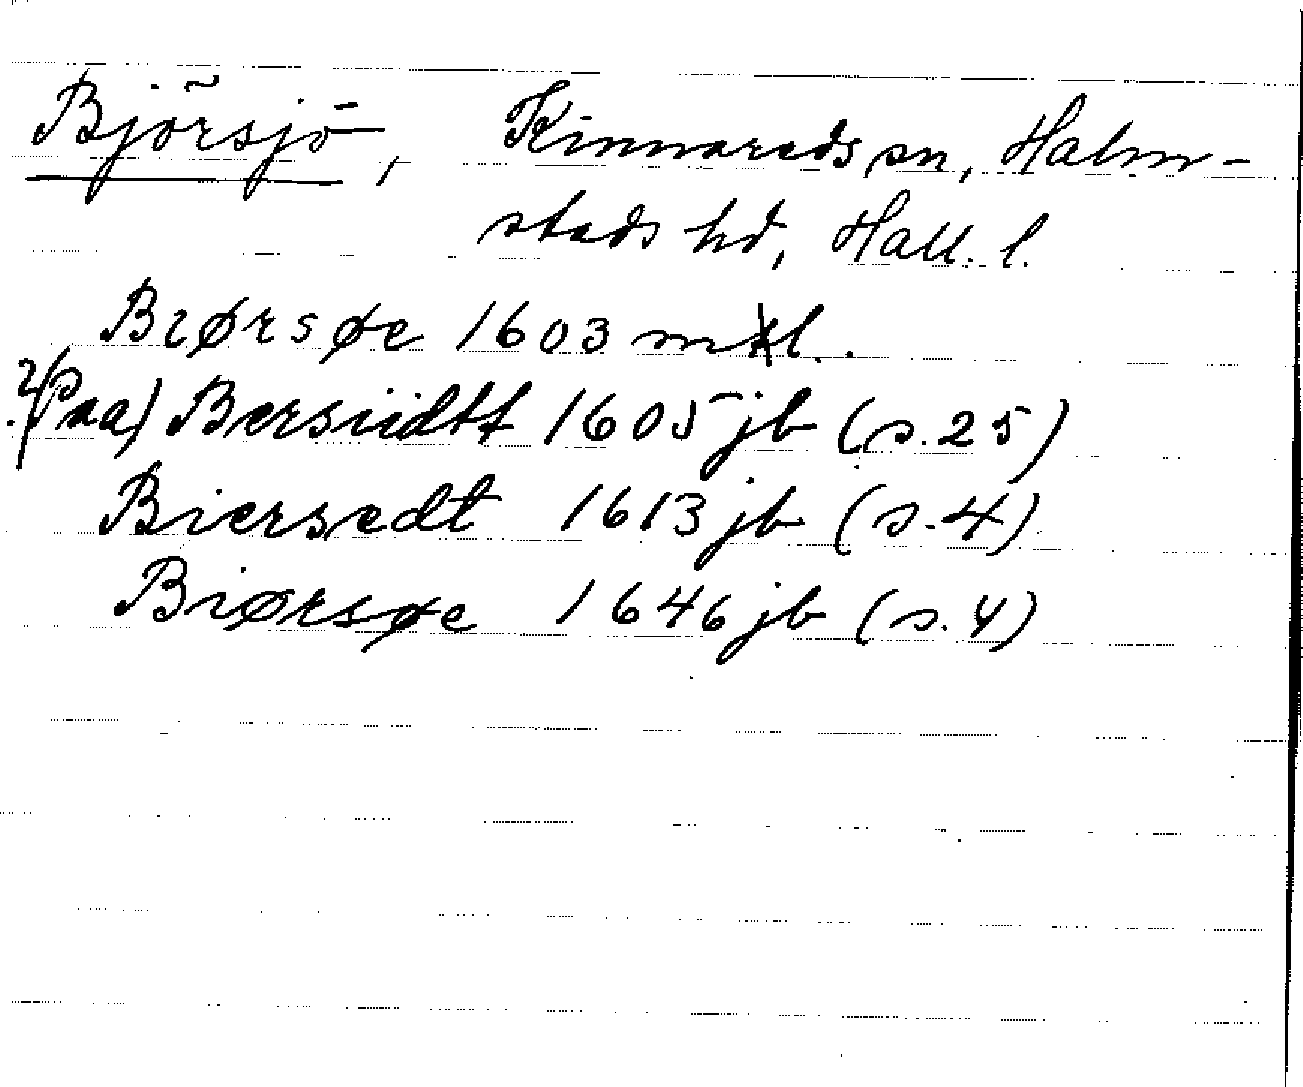 Björsjö, Kinnareds sn, Halm-
stads hd, Hall. l.
Biørsøe 1603 mtl.
?(Paa) Bersiidtt 1605 jb (s. 25)
Biersedt 1613 jb (s. 4)
Biørsøe 1646 jb (s. 4)